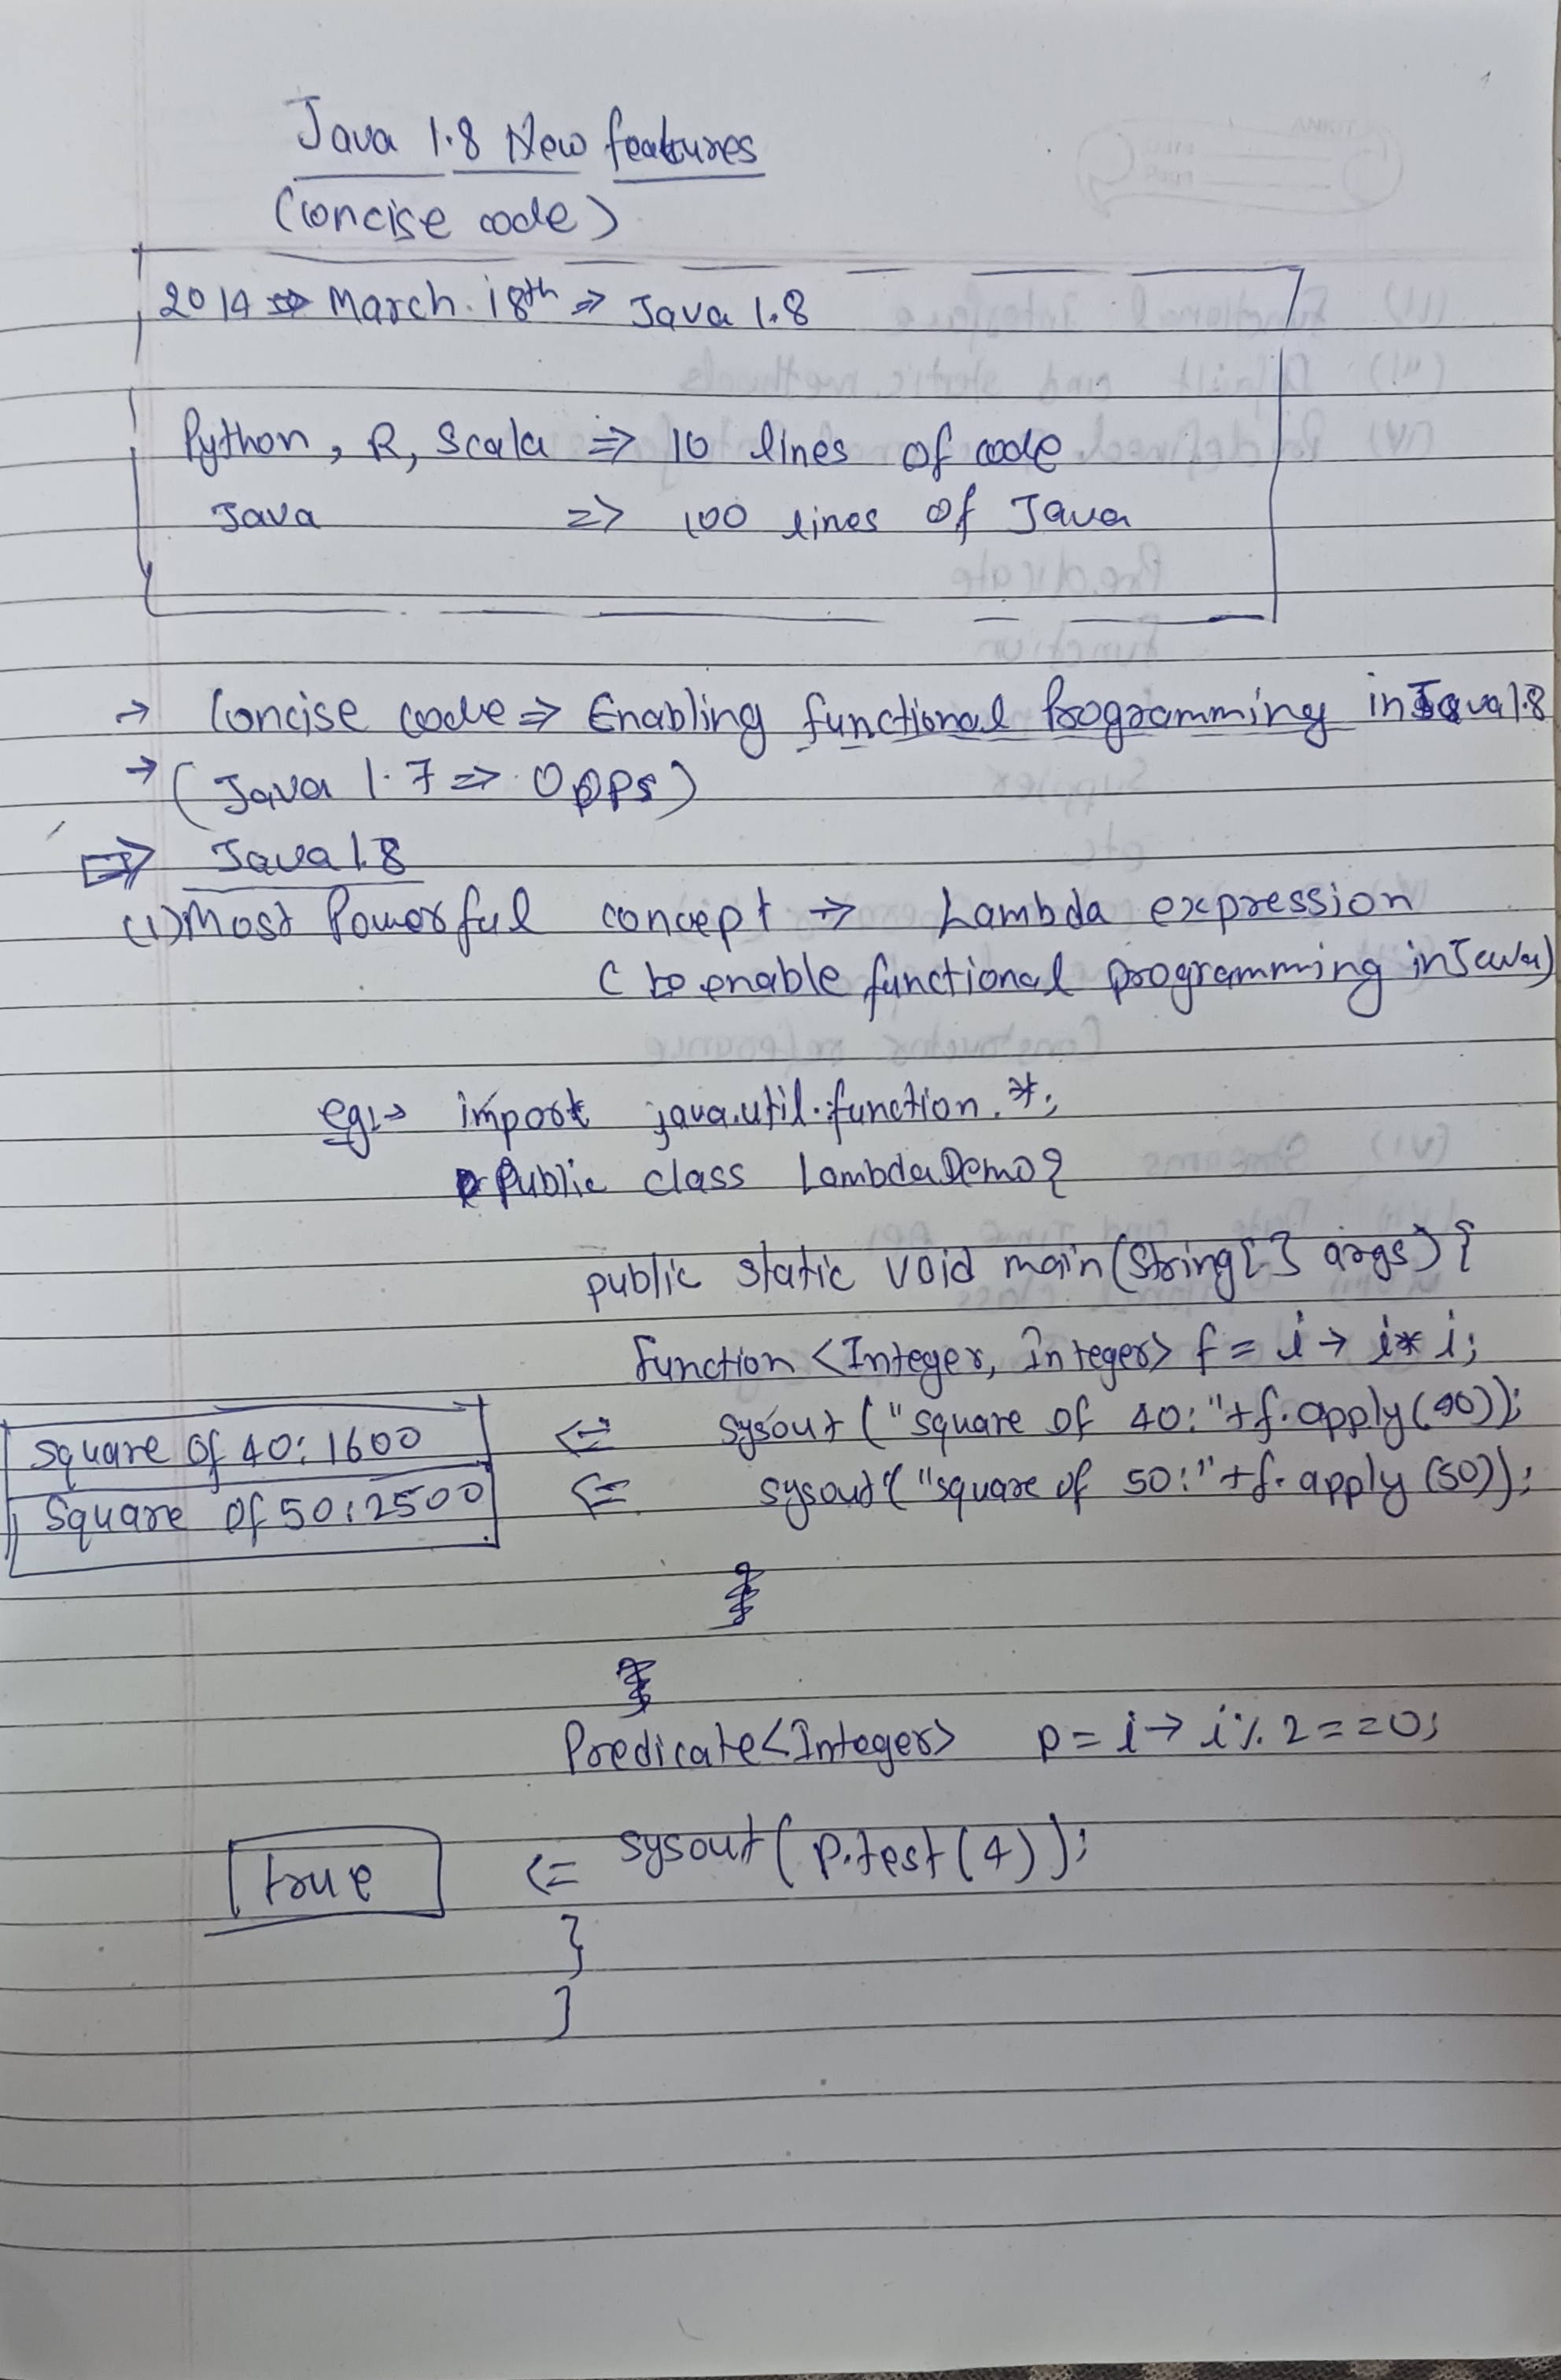 Java 1.8 New features
(Concise code)
2014 => March. 18th => Java 1.8
Python, R, Scala => 10 lines of code
Java => 100 lines of Java
→ Concise code => Enabling functional Programming in Java 1.8
→ (Java 1.7 => OOPPS)
=> Java 1.8
(1) Most Powerful concept => Lambda expression
( to enable functional programming in Java)
eg:→ import java.util.function.*;
Public class LambdaDemo{
public static void main(String[] args) {
function <Integer, Integer> f = i → i* i;
square of 40: 1600 <= sysout ("square of 40:"+f.apply(40));
Square of 50: 2500 <= sysout ("square of 50:"+f.apply (50));
Predicate<Integer> p = i → i % 2 == 0;
true <= sysout ( p.test (4) );
}
}